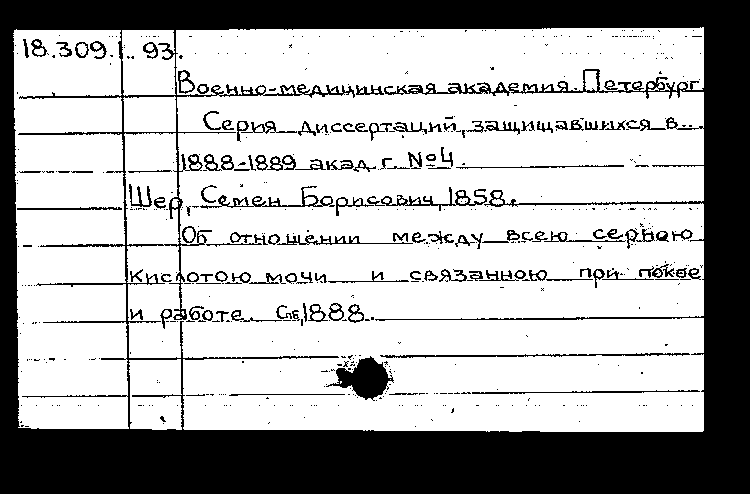 18.309.1. 93.
Военно-медицинская академия. Петербург.
Серия диссертаций, защищавшихся в...
1888-1889 акад. г. №4.
Шер, Семен Борисович, 1858.
Об отношении между всею серною
кислотою мочи и связанною при покое
и работе. Спб, 1888.